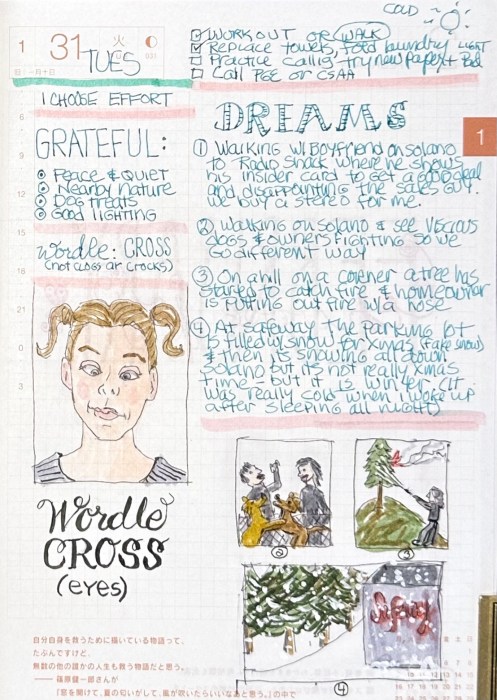 1 31 火
TUES
COLD
WORK OUT or WALK
Replace towels, fold laundry LIGHT
Practice callig, try new paper +
Call PGE or CSAA
I CHOOSE EFFORT
GRATEFUL:
Peace & QUIET
Nearby nature
Dog treats
Good LIGHTING
Wordle: CROSS
(not CLOGS or CROCKS)
Wordle
CROSS
(eyes)
DREAMS
① Walking w/ Boyfriend on Solano
to Radio Shack where he shows
his insider card to get a good deal
and disappointing the sales guy.
we buy a stereo for me.
② Walking on Solano & see viscious
dogs & owners fighting so we
go different way
③ On a hill on a corner a tree has
started to catch fire & homeowner
is putting out fire w/ a hose
④ At safeway the parking lot
is filled w/ snow for Xmas (fake snow)
& then its snowing all down
Solano but its not really Xmas
time - but it is winter. (It
was really cold when I woke up
after sleeping all night)
1
②
③
Safeway
④
自分自身を救うために描いている物語って、
たぶんですけど、
無数の他の誰かの人生も救う物語だと思う。
―― 篠原健一郎さんが
『窓を開けて、夏の匂いがして、風が吹いたらいいなあと思う。』の中で